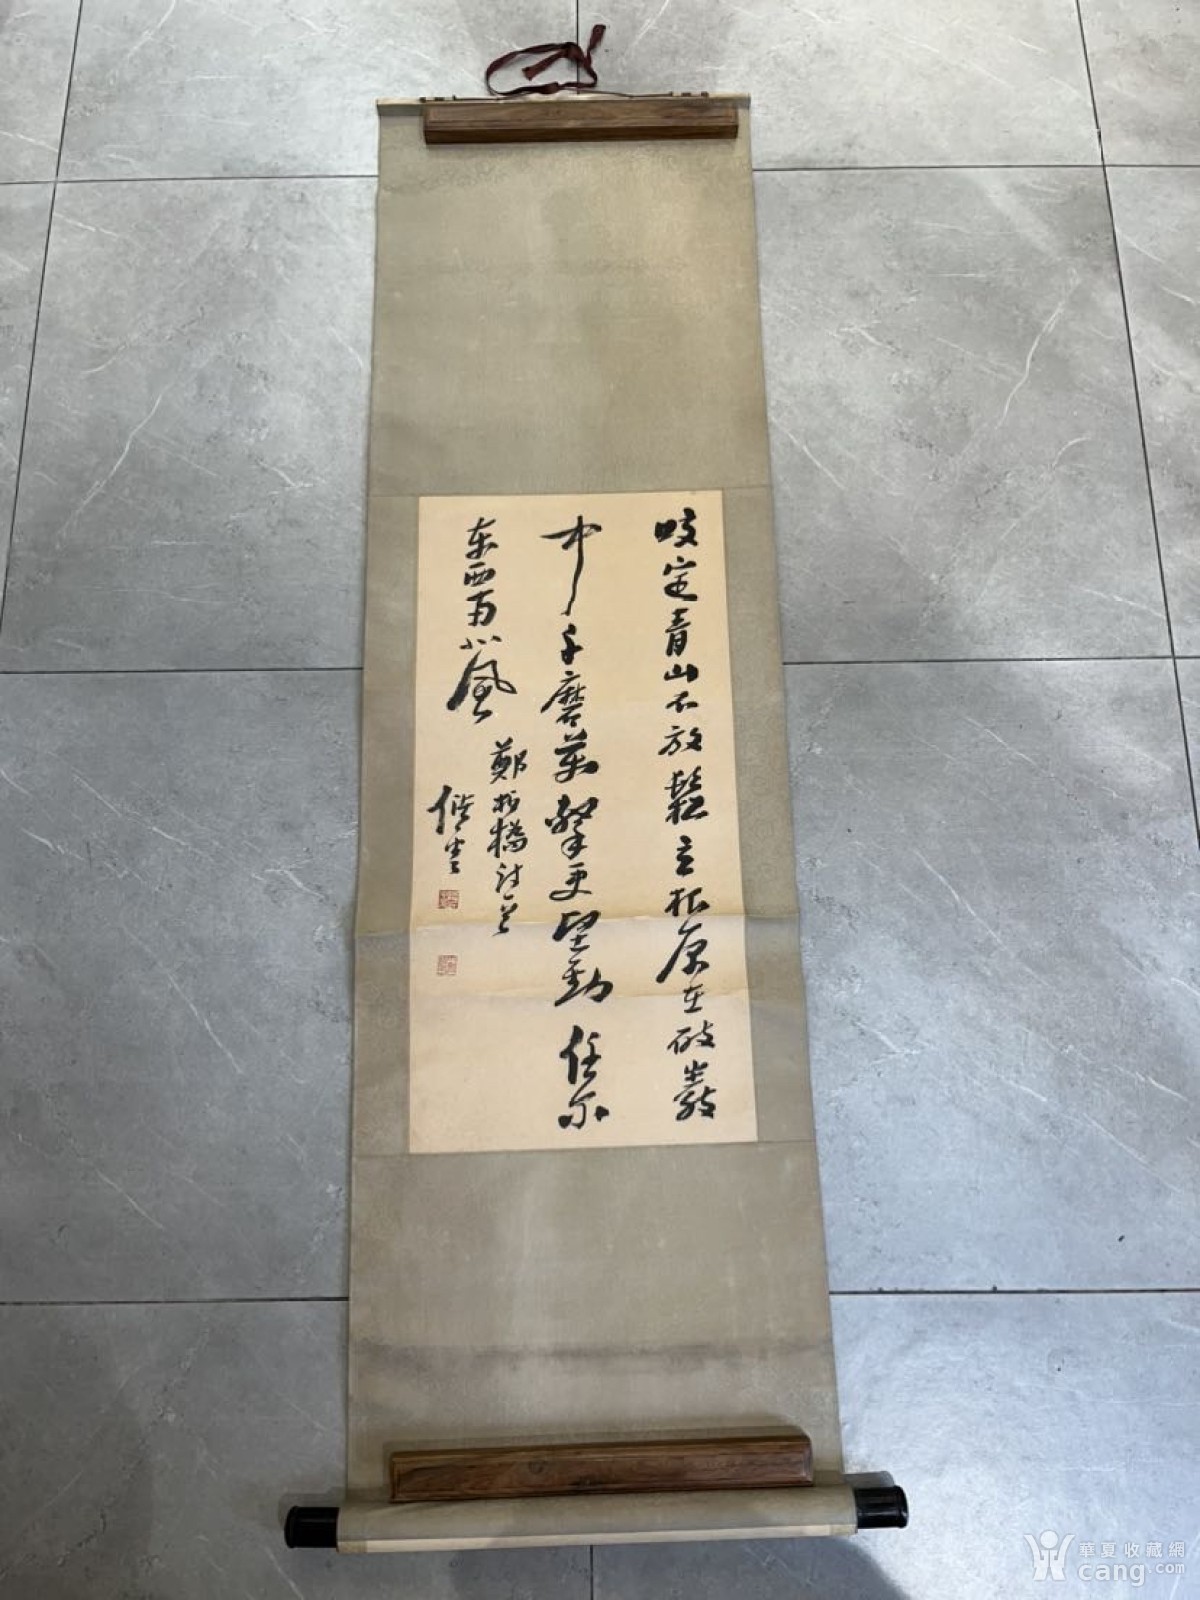 咬定青山不放鬆立根原在破巖
中千磨萬擊更堅勁任尔
东西南北風
鄭板橋詩一首
華夏收藏網
cang.com